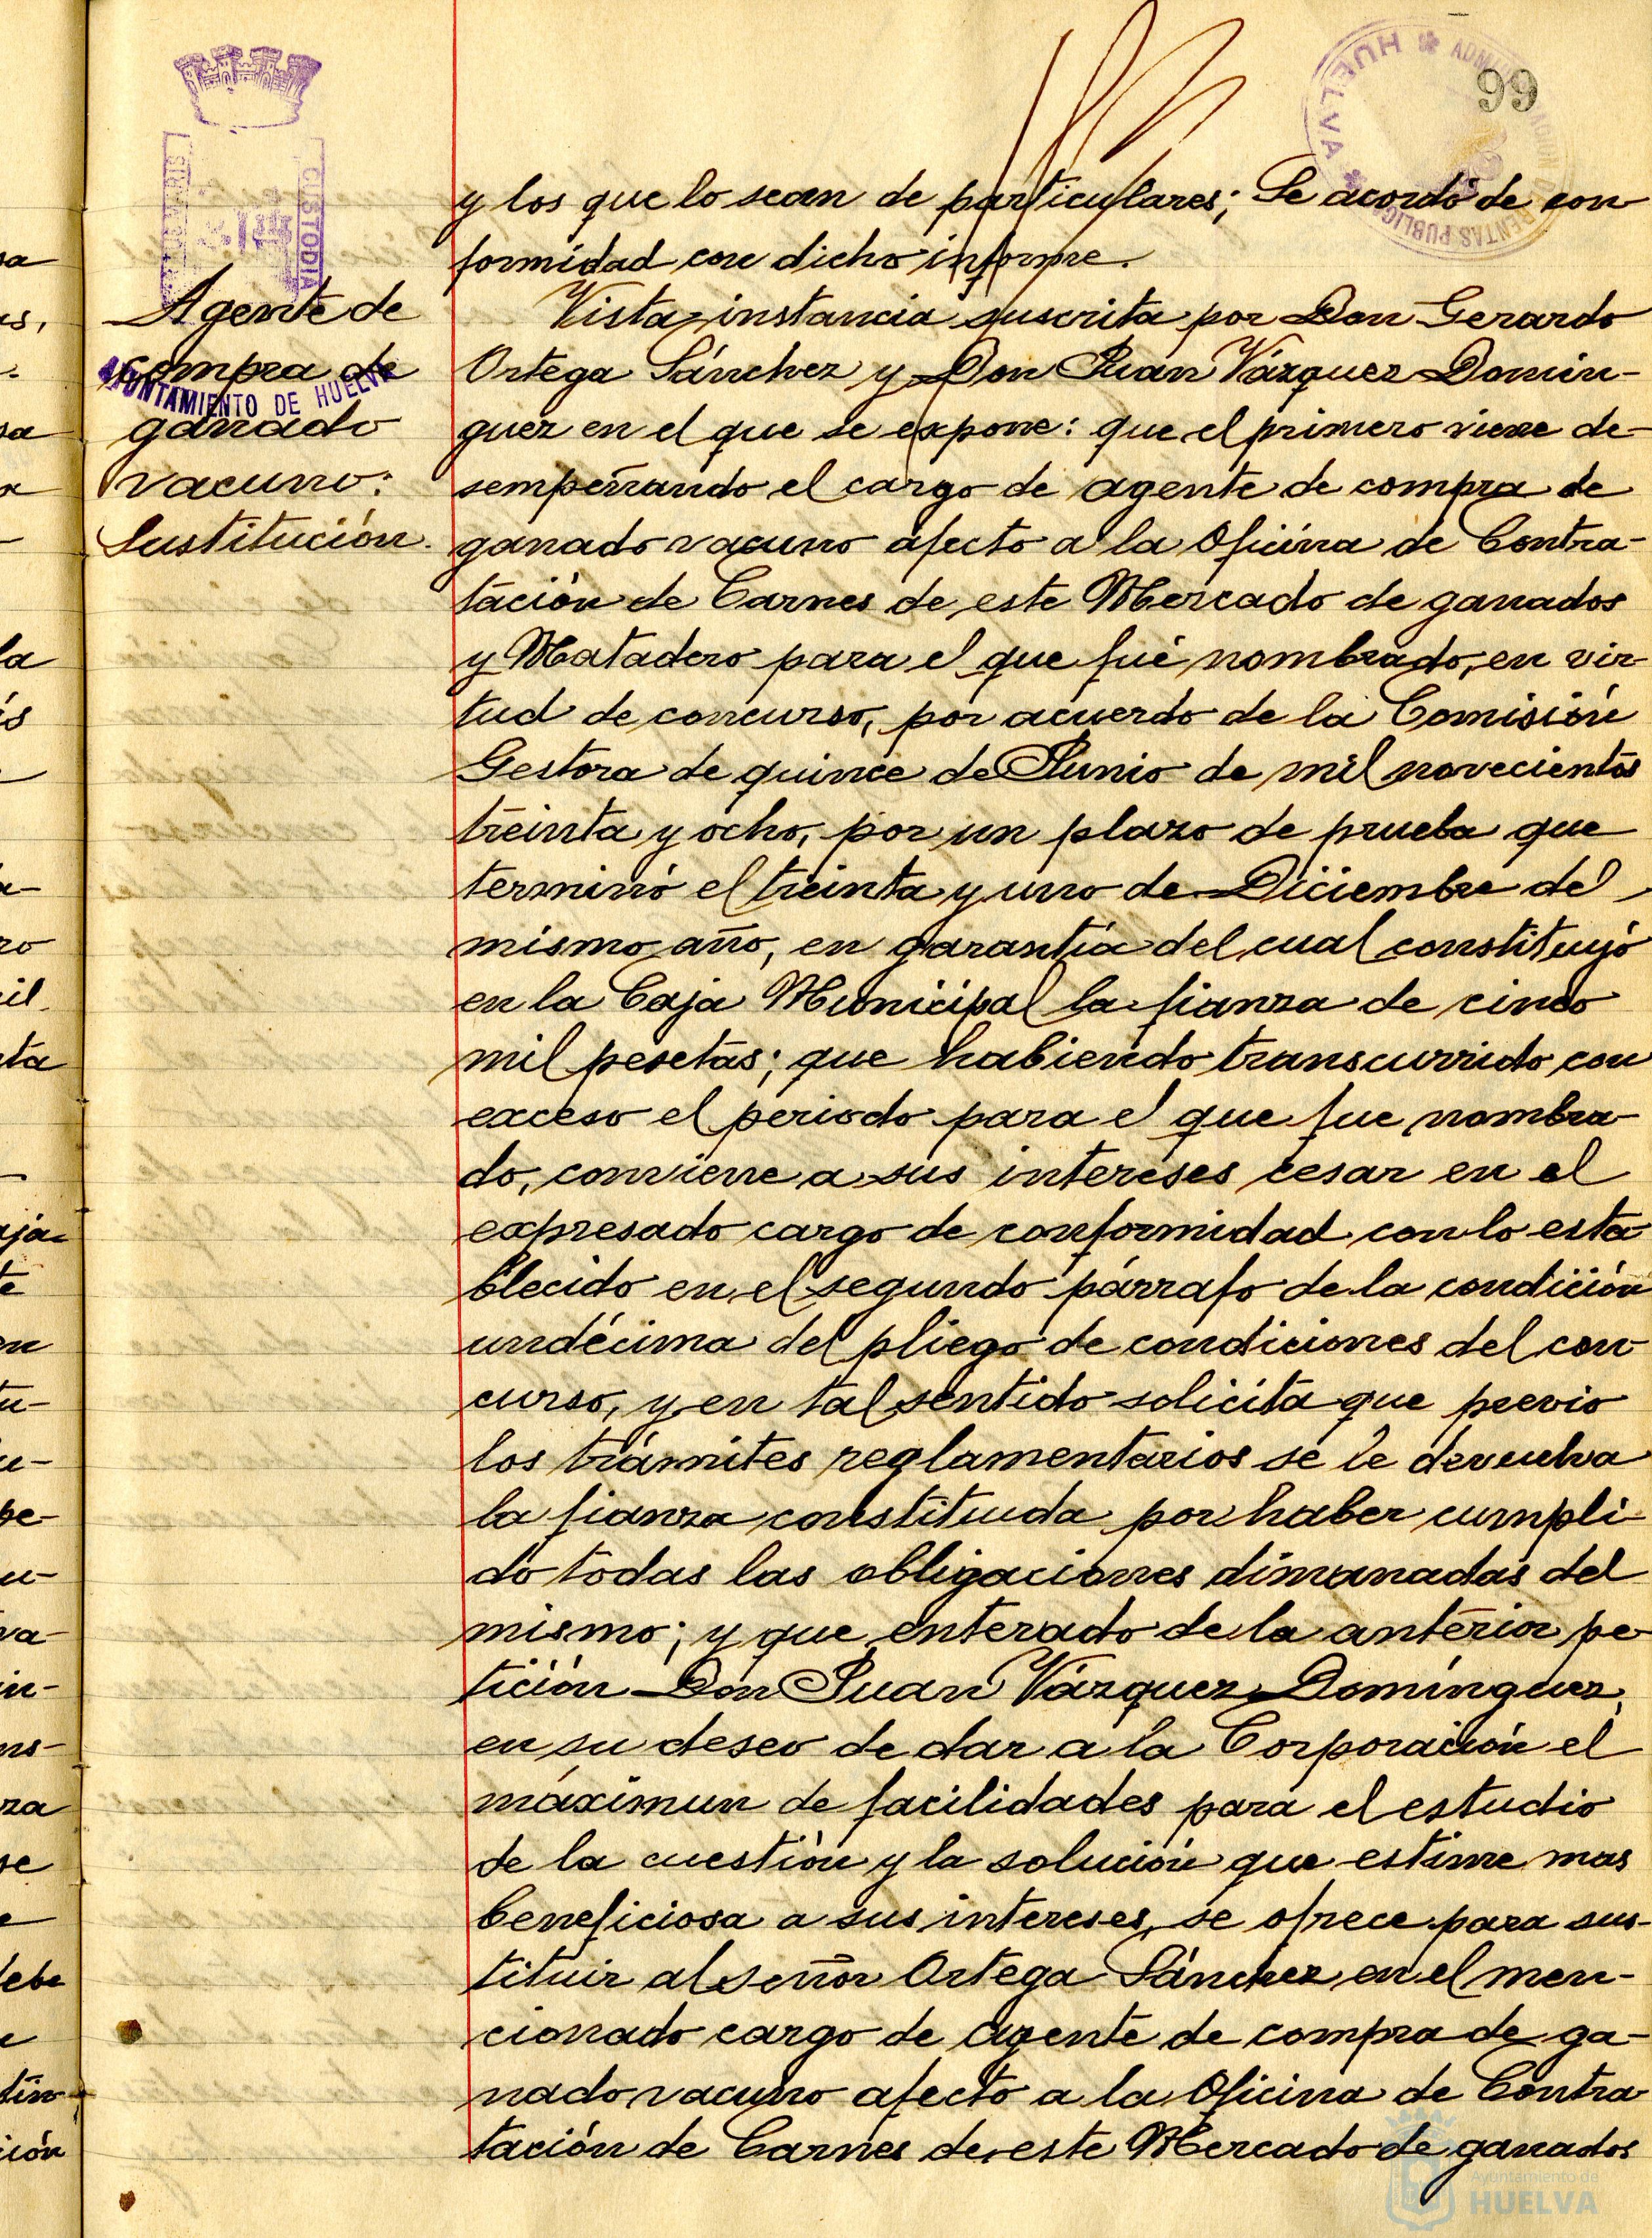 99
y los que lo sean de particulares; Se acordó de con
formidad con dicho informe.
Agente de
compra de
ganado
vacuno:
Sustitución.
AYUNTAMIENTO DE HUELVA
CUSTODIA
HUELVA
Vista instancia suscrita por Don Gerardo
Ortega Sánchez y Don Juan Vázquez Domin-
guez en el que se expone: que el primero viene de-
sempeñando el cargo de agente de compra de
ganado vacuno afecto a la Oficina de Contra-
tación de Carnes de este Mercado de ganados
y Matadero para el que fué nombrado, en vir-
tud de concurso, por acuerdo de la Comisión
Gestora de quince de Junio de mil novecientos
treinta y ocho, por un plazo de prueba que
terminó el treinta y uno de Diciembre del
mismo año, en garantía del cual constituyó
en la Caja Municipal la fianza de cinco
mil pesetas; que habiendo transcurrido con
exceso el periodo para el que fue nombra-
do, conviene a sus intereses cesar en el
expresado cargo de conformidad con lo esta
blecido en el segundo párrafo de la condición
undécima del pliego de condiciones del con
curso, y en tal sentido solicita que previo
los trámites reglamentarios se le devuelva
la fianza constituida por haber cumpli-
do todas las obligaciones dimanadas del
mismo; y que enterado de la anterior pe
tición Don Juan Vázquez Domínguez,
en su deseo de dar a la Corporación el
máximun de facilidades para el estudio
de la cuestión y la solución que estime mas
beneficiosa a sus intereses, se ofrece para sus-
tituir al señor Ortega Sánchez en el men-
cionado cargo de agente de compra de ga-
nado vacuno afecto a la Oficina de Contra
tación de Carnes de este Mercado de ganados
Ayuntamiento de
HUELVA